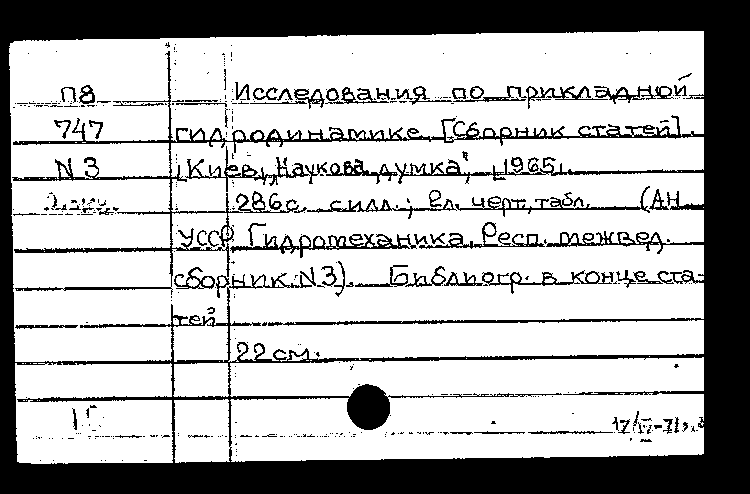 П8 Исследования по прикладной
747 гидродинамике. [Сборник статей].
N3 [Киев, „Наукова думка", [1965].
286с. с илл.; 2л. черт, табл. (АН
УССР Гидромеханика. Респ. межвед.
сборник. N3). Библиогр. в конце ста-
тей
22 см.
17/IV-71,